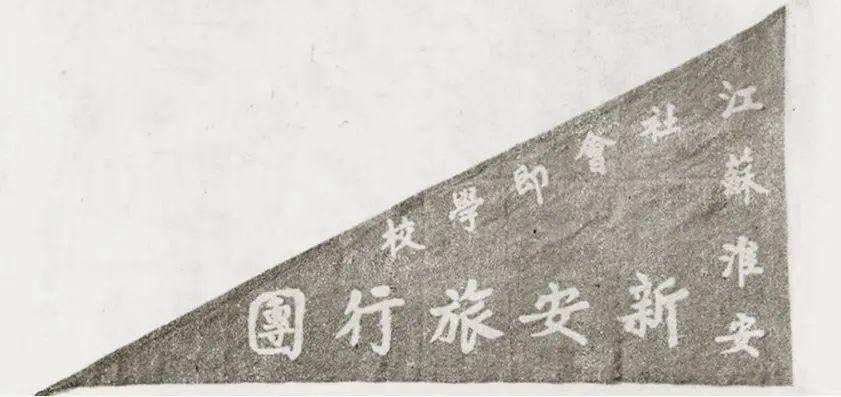 江蘇淮安
社會即學校
新安旅行團